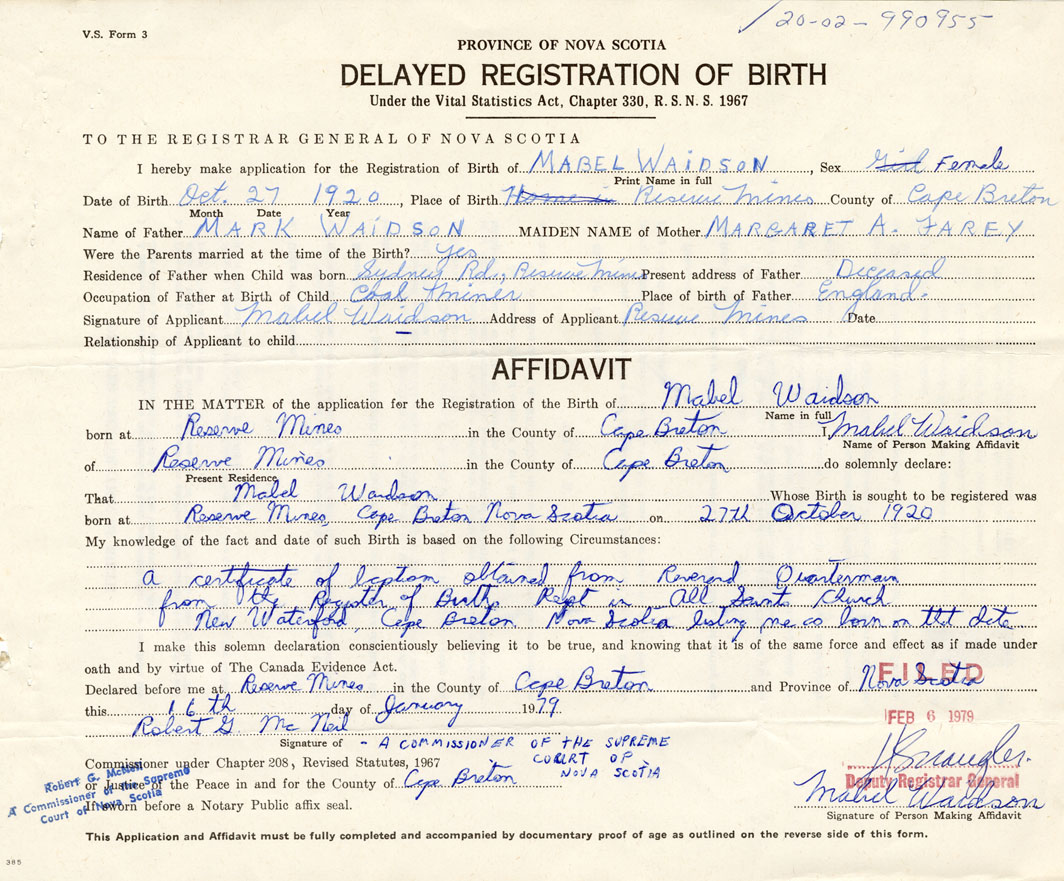 20-02-990955
V.S. Form 3
PROVINCE OF NOVA SCOTIA
DELAYED REGISTRATION OF BIRTH
Under the Vital Statistics Act, Chapter 330, R. S. N. S. 1967
TO THE REGISTRAR GENERAL OF NOVA SCOTIA
I hereby make application for the Registration of Birth of MABEL WAIDSON, Sex Girl Female
Print Name in full
Date of Birth Oct. 27 1920, Place of Birth Reserve Mines County of Cape Breton
Month Date Year
Name of Father MARK WAIDSON MAIDEN NAME of Mother MARGARET A. FAREY
Were the Parents married at the time of the Birth? Yes
Residence of Father when Child was born Sydney Rd., Reserve Mines Present address of Father Deceased
Occupation of Father at Birth of Child Coal Miner Place of birth of Father England.
Signature of Applicant Mabel Waidson Address of Applicant Reserve Mines Date
Relationship of Applicant to child
AFFIDAVIT
IN THE MATTER of the application for the Registration of the Birth of Mabel Waidson
Name in full
born at Reserve Mines in the County of Cape Breton I Mabel Waidson
Name of Person Making Affidavit
of Reserve Mines in the County of Cape Breton do solemnly declare:
Present Residence
That Mabel Waidson Whose Birth is sought to be registered was
born at Reserve Mines, Cape Breton Nova Scotia on 27th October 1920
My knowledge of the fact and date of such Birth is based on the following Circumstances:
A certificate of baptism obtained from Reverend Quartermain
from the Register of Births Kept in All Saints Church
New Waterford, Cape Breton Nova Scotia listing me as born on tht date
I make this solemn declaration conscientiously believing it to be true, and knowing that it is of the same force and effect as if made under
oath and by virtue of The Canada Evidence Act.
Declared before me at Reserve Mines in the County of Cape Breton and Province of Nova Scotia
FILED
this 16th day of January 1979.
FEB 6 1979
Robert G. Mc Neil
Signature of - A COMMISSIONER OF THE SUPREME
COURT OF
NOVA SCOTIA
Commissioner under Chapter 208, Revised Statutes, 1967
or Justice of the Peace in and for the County of Cape Breton
If sworn before a Notary Public affix seal.
Robert G. McNeil
A Commissioner of the Supreme
Court of Nova Scotia
Deputy Registrar General
Mabel Waidson
Signature of Person Making Affidavit
This Application and Affidavit must be fully completed and accompanied by documentary proof of age as outlined on the reverse side of this form.
385